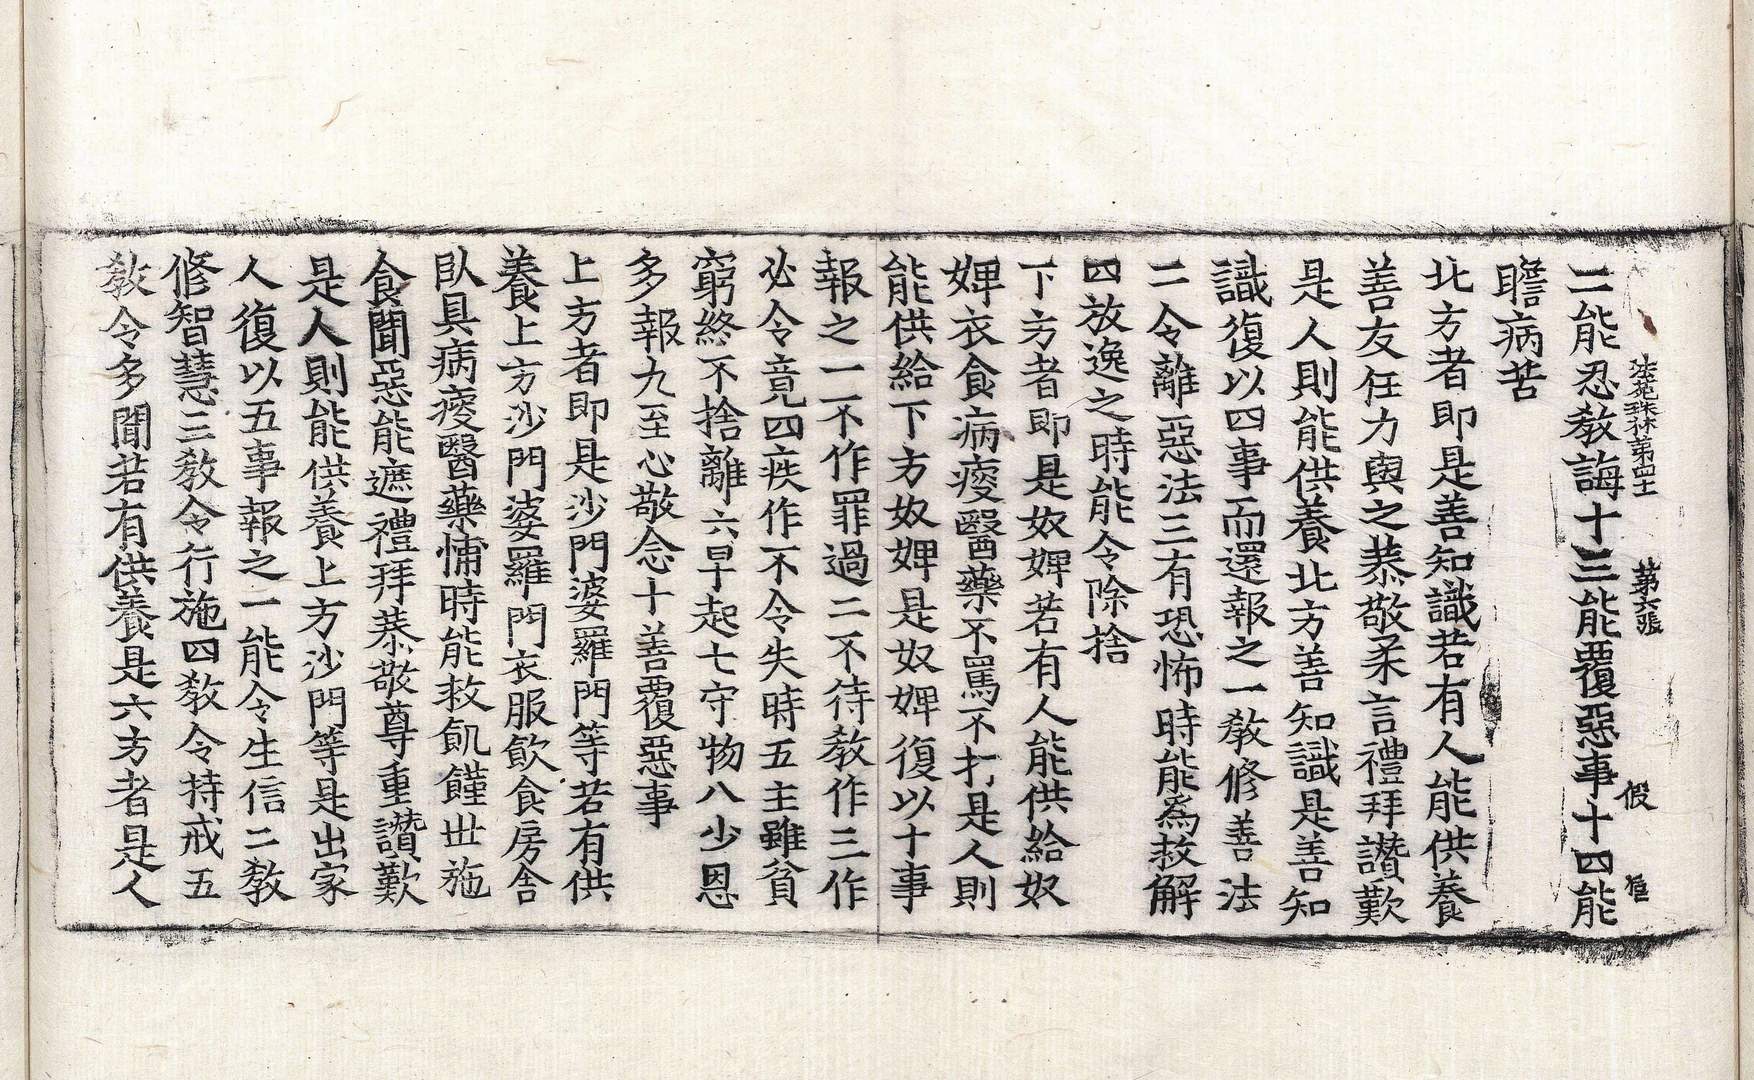 法苑珠林第四十 第六張 假
二能忍教誨十三能覆惡事十四能
瞻病苦
北方者即是善知識若有人能供養
善友任力與之恭敬柔言禮拜讚歎
是人則能供養北方善知識是善知
識復以四事而還報之一教修善法
二令離惡法三有恐怖時能爲救解
四放逸之時能令除捨
下方者即是奴婢若有人能供給奴
婢衣食病瘦醫藥不罵不打是人則
能供給下方奴婢是奴婢復以十事
報之一不作罪過二不待教作三作
必令竟四疾作不令失時五主雖貧
窮終不捨離六早起七守物八少恩
多報九至心敬念十善覆惡事
上方者即是沙門婆羅門等若有供
養上方沙門婆羅門衣服飲食房舍
卧具病瘦醫藥怖時能救飢饉世施
食聞惡能遮禮拜恭敬尊重讚歎
是人則能供養上方沙門等是出家
人復以五事報之一能令生信二教
修智慧三教令行施四教令持戒五
教令多聞若有供養是六方者是人